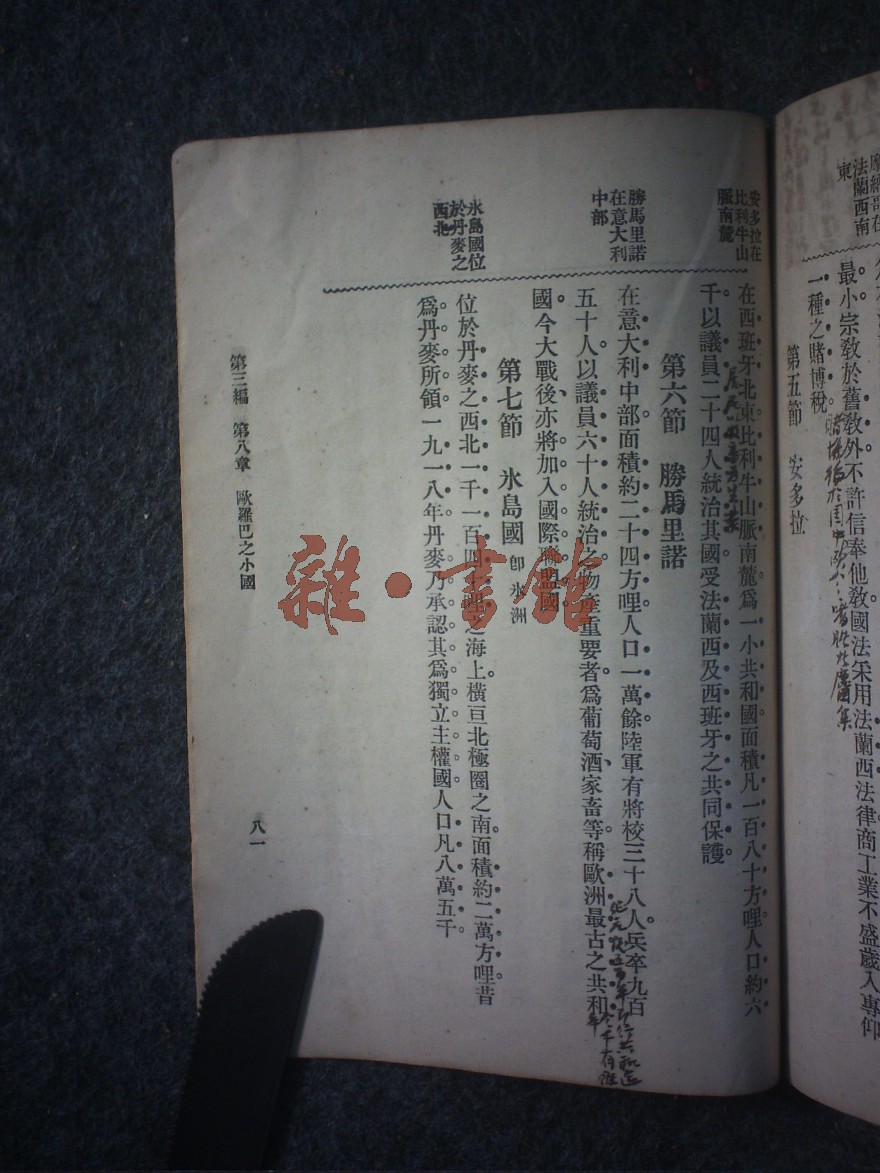 摩納哥在
法蘭西南
東
最小宗教於舊教外不許信奉他教國法采用法蘭西法律商工業不盛歲入專仰
一種之賭博稅
第五節　安多拉
安多拉在
比利牛山
脈南麓
在西班牙北東比利牛山脈南麓爲一小共和國面積凡一百八十方哩人口約六
千以議員二十四人統治其國受法蘭西及西班牙之共同保護
第六節　勝馬里諾
勝馬里諾
在意大利
中部
在意大利中部面積約二十四方哩人口一萬餘陸軍有將校三十八人兵卒九百
五十人以議員六十人統治之物產重要者爲葡萄酒、家畜等稱歐洲最古之共和
國今大戰後亦將加入國際聯盟國
第七節　氷島國　卽氷洲
氷島國位
於丹麥之
西北
位於丹麥之西北一千一百四十哩之海上橫亘北極圈之南面積約二萬方哩昔
爲丹麥所領一九一八年丹麥乃承認其爲獨立主權國人口凡八萬五千
第三編　第八章　歐羅巴之小國
八一
雜·書館